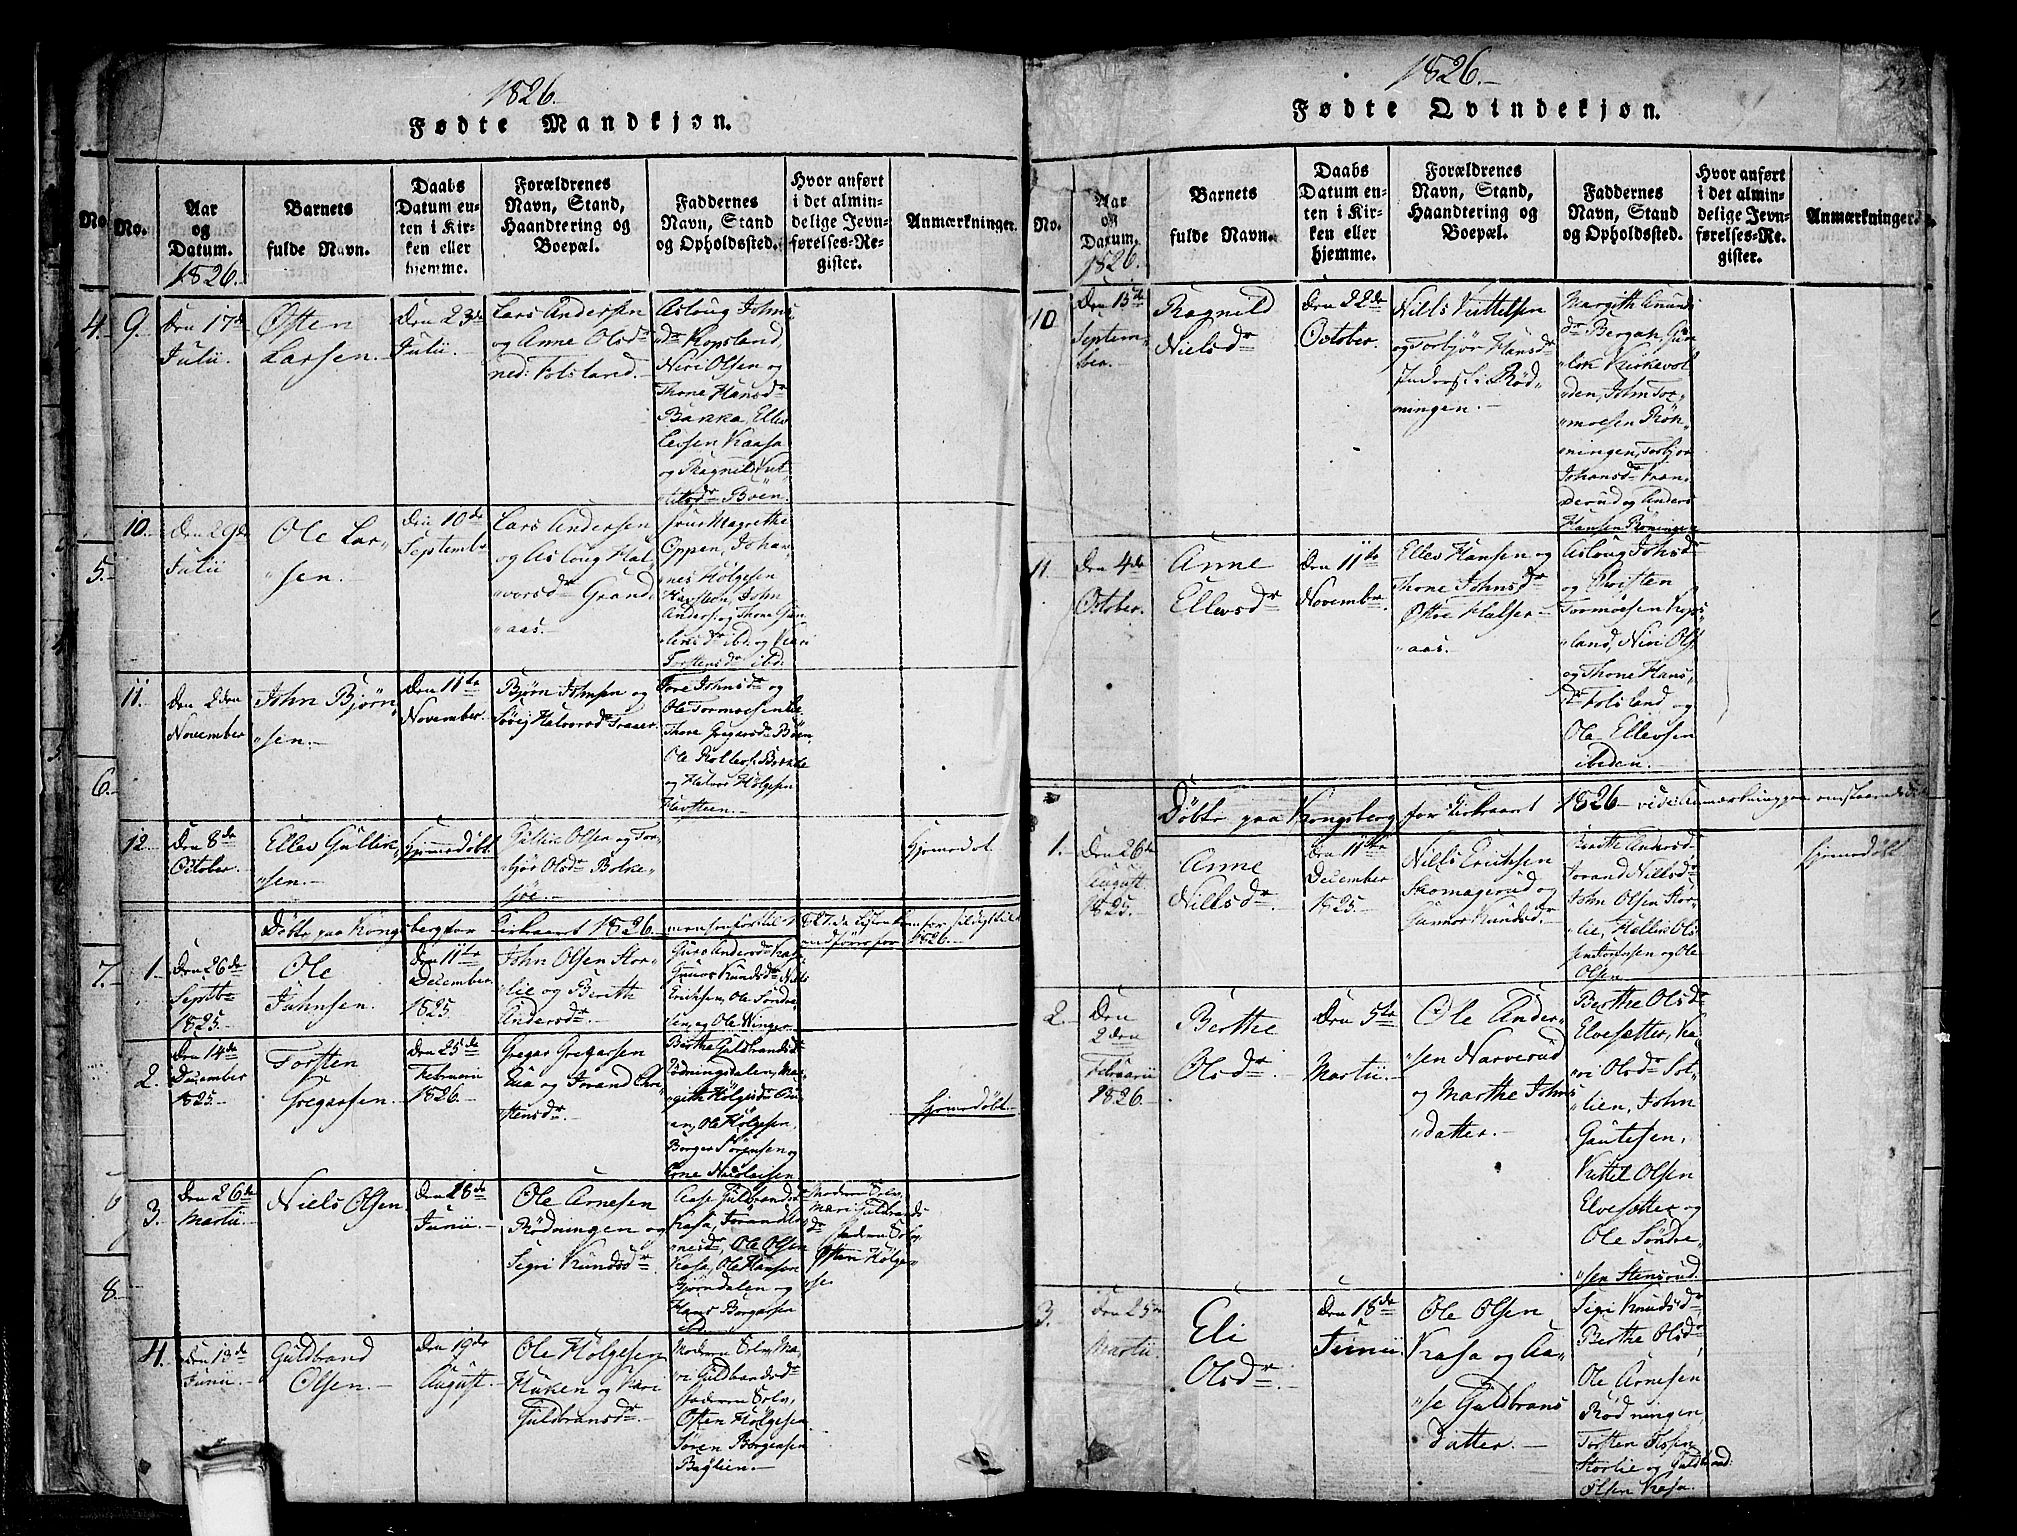 1826.
Fødte Mandkjøn.
No.
No.
Aar og Datum. 1826.
Barnets fulde Navn.
Daabs Datum enten i Kirken eller hjemme.
Forældrenes Navn, Stand, Haandtering og Boepæl.
Faddernes Navn, Stand og Opholdssted.
Hvor anført i det almindelige Jevnførelses-Register.
Anmærkninger.
4.
9.
Den 17de
Julii.
Østen
Larsen.
Den 23de
Julii.
Lars Andersen
og Anne Olsdr
ned: Folsland.
Asloug Johns
dr Kopsland,
Niri Olsen og
Thone Hansdr
Bakka, Ellev
Leifsen Kaasa
og Ragnild Kit-
telsdr Bøen.
10.
Den 29de
Julii
Ole Lar-
sen.
Den 10de
Septembr
Lars Andersen
og Asloug Hal-
vorsdr Grand-
aas.
Frue Magrethe
Oppen, Johan-
nes Hølgesen
Havsteen, John
Anders. og Thone
Torstensdr ibd.
5.
11.
Den 2den
November
John Bjørn-
sen.
Den 11te
November.
Bjørn Johnsen og
Halvorsdr Traaer.
Tore Johnsdr og
Ole Tormoesen
Thore Gregarsdr Bøen,
Ole
og Halvor Hølgesen
Havsteen.
6.
12.
Den 8de
October.
Ellev Gullik-
sen.
Hjemedøbt.
Gullik Olsen og Tor-
bjør Olsdr Bolke-
sjøe.
Hjemedøbt
Døbte paa Kongsberg for Kirkeaaret 1826
1826.
7.
1.
Den 26de
Septbr
1825.
Ole
Johnsen.
Den 11te
December
1825.
John Olsen Stor-
lie og Berith
Andersdr.
Guro Andersdr
Gunor Knudsdr Niels
Ericksen, Ole Søndre
2.
Den 14de
December
1825.
Torsten
Gregarsen.
Den 25de
Februarii
1826.
Gregar Gregarsen
og Jorand Chri-
stensdr.
Berthe Guldbrandsdr
Rødningsdalen, Mar-
gith Hølgesdr
Ole Hølgesen,
Borger Sørensen og
Arne Nicolaisen
Hjemedøbt.
3.
Den 26de
Martii.
Niels Olsen
Den 18de
Junii.
Ole Arnesen
Rødningen og
Sigri Knudsdr.
Aase Guldbrandsdr
Kasa, Jorand
Ole Olsen
Kasa, Ole Hansen
Bjørndalen og
Hans Borgersen
ibd.
Moderen
Mari Guldbrands
dr
Faderen
Østen Hølge-
se
8.
4.
Den 13de
Junii.
Guldbrand
Olsen.
Den 19de
August.
Ole Hølgesen
Haken og Kari
Guldbransdr.
Moderen Selv, Ma-
ri Guldbrandsdr
Faderen Selv,
Østen Hølgesen
Søren Borgersen
Baglien.
1826.
Fødte Qvindekjøn.
No.
Aar og Datum. 1826.
Barnets fulde Navn.
Daabs Datum enten i Kirken eller hjemme.
Forældrenes Navn, Stand, Haandtering og Boepæl.
Faddernes Navn, Stand og Opholdssted.
Hvor anført i det almindelige Jevnførelses-Register.
Anmærkninger.
10
Den 15de
Septem-
ber.
Ragnild
Nielsdr
Den 22de
October.
Niels Kittelsen
og Torbjør Hansdr
Inderst i Rød-
ningen.
Margith Knuds
dr Bergan, Gun-
lek Kirkevol-
den, John Tor-
moesen Røn-
ningen, Torbjør
Johansdr Tran-
derud og Anders
Hansen Røningen
11.
Den 4de
October.
Anne
Ellevsdr
Den 11te
November.
Ellev Hansen og
Thone Johnsdr
Øttre Halser-
aas.
Aslaug Johsdr
og Christen
Tormoesen Kops-
land, Niri Ols.
og Thone Hans
dr Folsland og
Ole Ellevsen
ibiden.
Døbte paa Kongsberg for Kirkeaaret 1826
1.
Den 26de
August
1825.
Anne
Nielsdr
Den 11te
December
1825.
Niels Ericksen
Skomagerud og
Gunnor Knudsdr
Berithe Andersd
Jorand Nielsdr
John Olsen Stor-
lie,
og Ole
Olsen
hjemedøbt
2.
Den
2den
Februarii
1826.
Berthe
Olsdr.
Den 5te
Martii.
Ole Ander-
sen Narverud
og Marthe Johns
datter.
Berthe Olsdr
Elvesetter, Ka-
ri Olsdr Sol-
lien, John
Gautesen,
Kittil Olsen
Elvesetter og
Ole Søndre-
sen Stensrud.
3.
Den 25de
Martii
Eli
Olsdr.
Den 18de
Junii.
Ole Olsen
Kasa og Aa-
se Guldbrans
datter.
Sigri Knudsdr
Berthe Olsdr,
Ole Arnesen
Rødningen,
Torsten
Storlie og Guldbrand
Olsen Kasa.